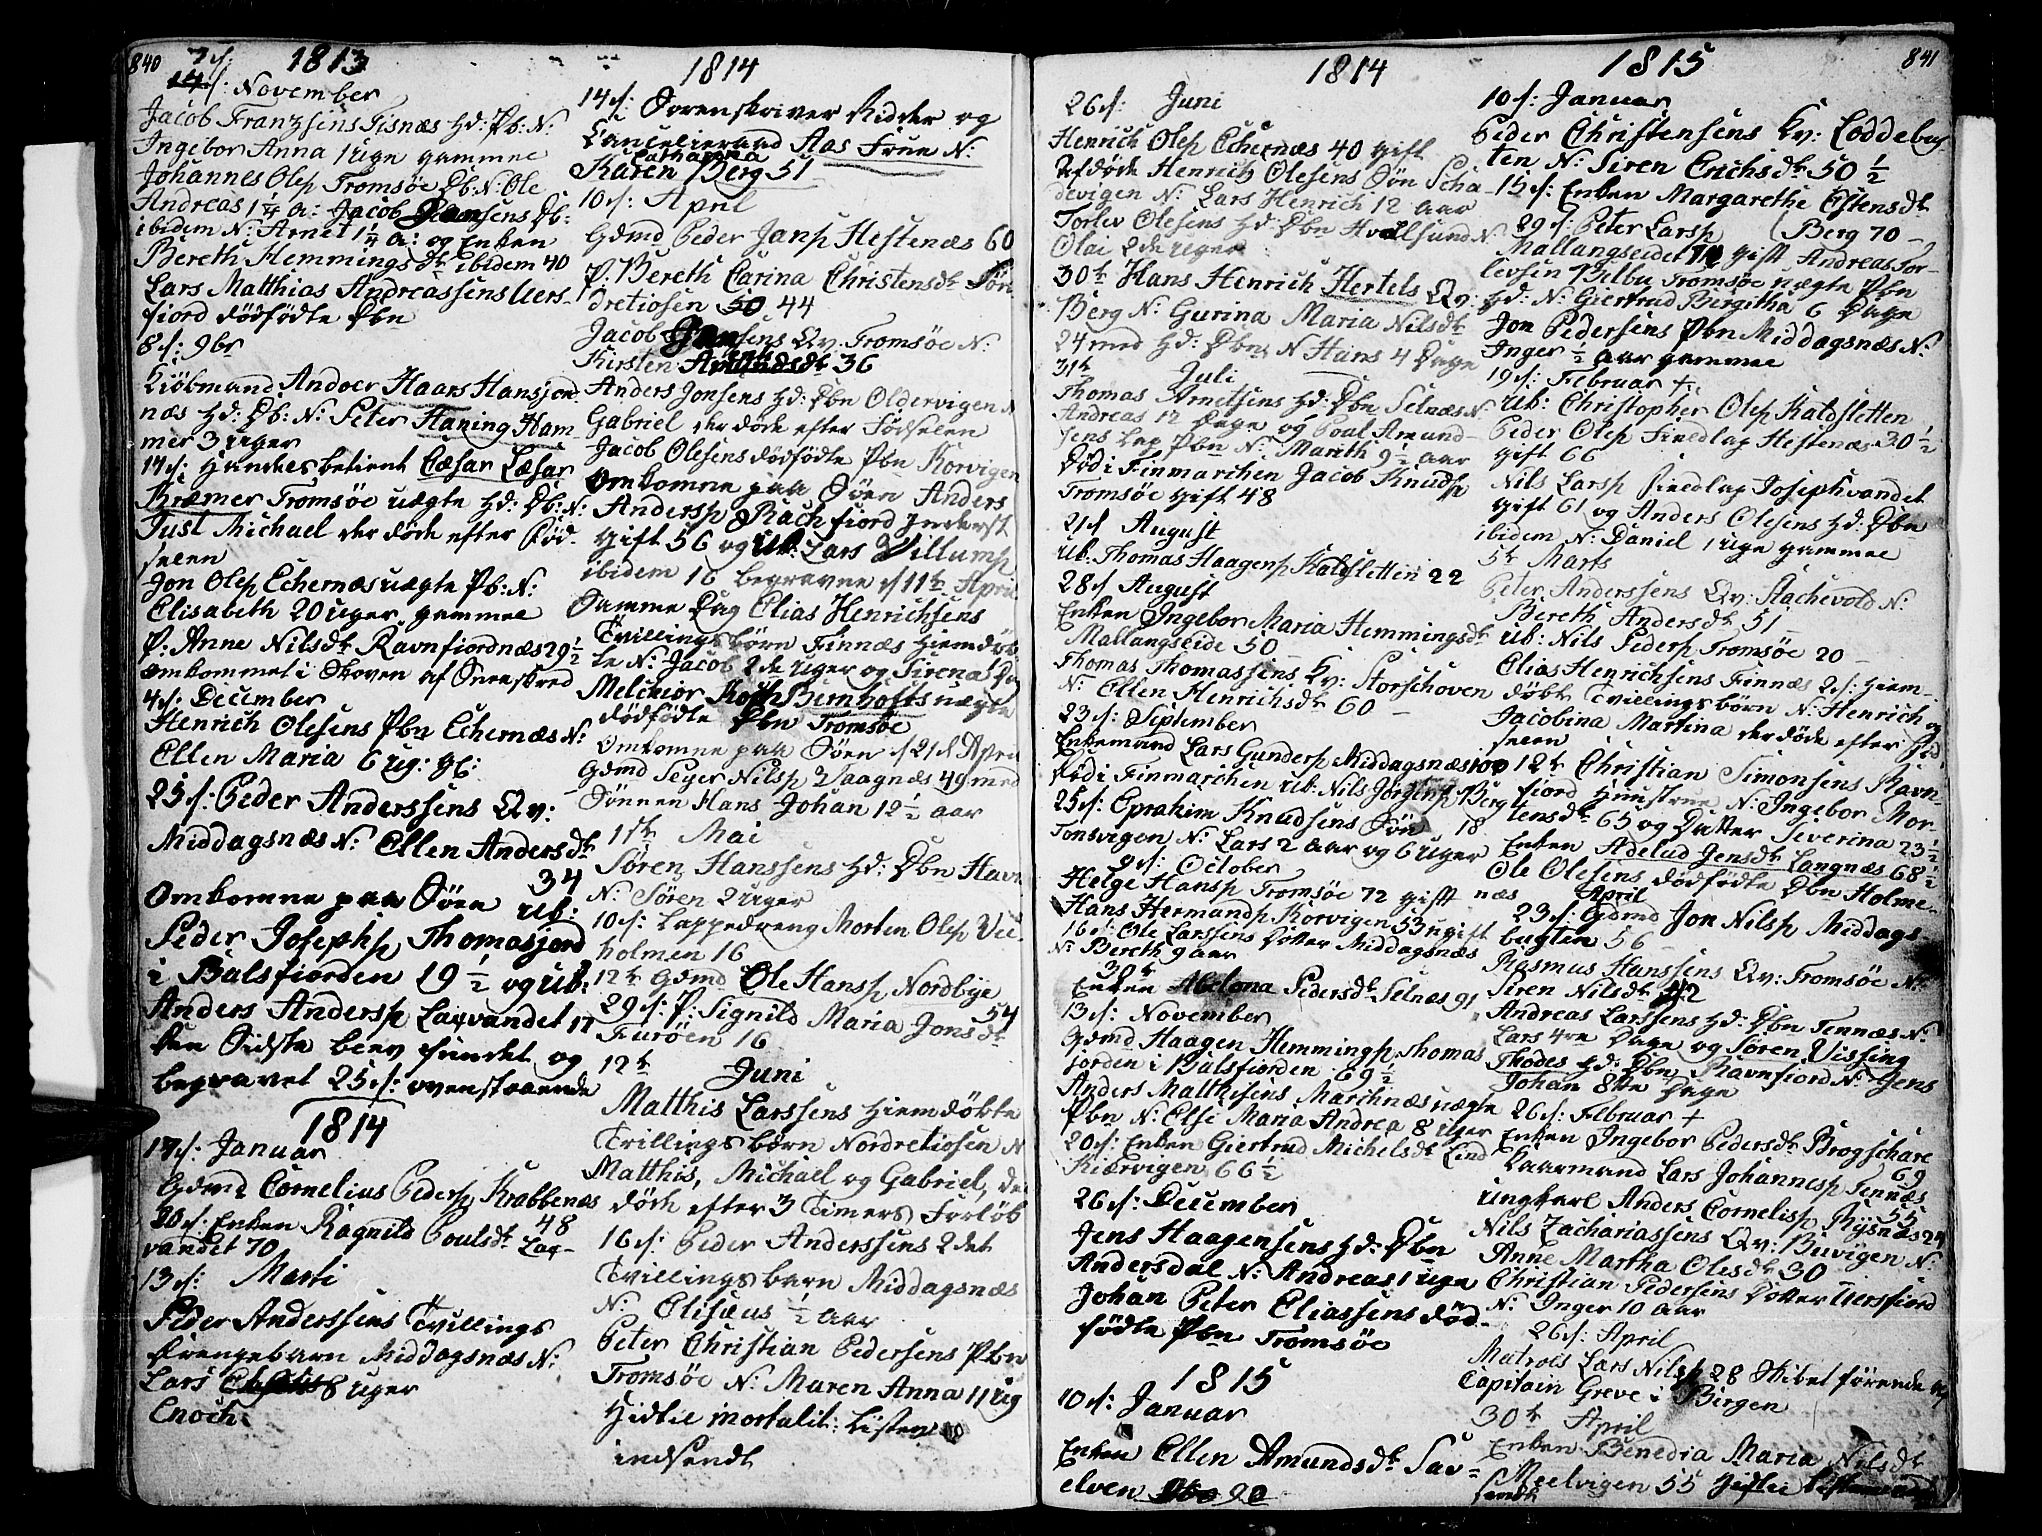 840
7 d: 1813
14 d: November
Jacob Franzsens Tisnæs Hd: Pb: N:
Ingebor Anna 1 Uge gammel
Johannes Olsp Tromsøe Db: N: Ole
Andreas 1 1/4 a: Jacob Jansens Db:
ibidem N: Arnet 1 1/4 a: og Enken
Bereth Hemmingsdtr ibidem 40
Lars Matthias Andreassens Uers-
fiord dödfödte Dbn
8 d: 9br
Kiöbmand Andoer Haars Hansjord-
næs Hd: Db: N: Peter Haning Ham-
mer 3 Uger
14 d: Handelsbetient Cæsar Læsar
Kræmer Tromsøe uægte Hd: Db: N:
Just Michael der döde efter Föd-
selen
Jon Olsp Echernæs uægte Pb: N:
Elisabeth 20 Uger gammel
P. Anne Nilsdtr Ravnfiordnæs 29 1/2
omkommet i Skoven af Sneeskred
4 d: December
Henrich Olesens Pbn Echernæs N:
Ellen Maria 6 Ug: gl:
25 d: Peder Anderssens Qv:
Middagsnæs N: Ellen Andersdtr
34
Omkomne paa Söen Uk:
Peder Josephsp Thomasjord
i Balsfiorden 19 1/2 og Uk:
Anders Andersp Laxvandet 17
den Sidste blev fundet og
begravet 25 d: ovenstaaende
1814
17 d: Januar
Gdmd Cornelius Pedersp Krabbenæs
48
20 d: Enken Ragnild Poulsdtr Lax-
vandet 70
13 d: Marti
Peder Anderssens Tvillings
Drengebarn Middagsnæs N:
Lars 8 Uger
Enoch
1814
14 d: Sorenskriver Ridder og
Cancelieraad Aas Frue N:
Catharina
Karen Berg 51
10 d: April
Gdmd Peder Jansp Hestenæs 60
P. Bereth Carina Christensdtr Söre
dretiosen 50 44
Jacob Jansens Qv: Tromsøe N:
Kirsten 36
Anders Jonsens Hd: Dbn Oldervigen N
Gabriel der döde efter Födselen
Jacob Olesens dödfödte Pbn Korvigen
Omkomne paa Söen Anders
Andersp Rachfiord Inderst
gift 56 og Uk: Lars Villumsp
ibidem 16 begravne d 11te April
Samme Dag Elias Henrichsens
Tvillingsbörn Finnæs Hiemdöb-
te N: Jacob 2de Uger og Sirena D
Melchior Koch Bernhofts uægte
dödfödte Dbn Tromsøe
Omkomne paa Söen d 21d April
Gdmd Seyer Nilsp Vaagnæs 49 med
Sönnen Hans Johan 12 1/2 aar
1ste Mai
Sören Hanssens Hd: Dbn Havn
N: Sören 2 Uger
10 d: Lappedreng Morten Olsp Vee-
holmen 16
12te Gdmd Ole Hansp Nordbye
54
29 d: P. Signild Maria Jonsdtr
Furöen 16
12te Juni
Matthis Larssens Hiemdöbte
Trillingsbörn Nordretiosen N
Matthis, Michael og Gabriel, de
döde efter 3 Timers Forlöb
16 d: Peder Anderssens 2det
Tvillingsbarn Middagsnæs
N: Elisæus 1/2 aar
Peter Christian Pedersens Pbn
Tromsöe N: Maren Anna 11 Ug
Hidtil mortalit: Listen
indsendt
1814
26 d: Juni
Henrich Olsp Echernæs 40 gift
Afdöde Henrich Olesens Sön Scha-
devigen N: Lars Henrich 12 aar
Torlev Olesens Hd: Dbn Hvalsund N
Olai 2de Uger
30te Hans Henrich Hertels Qv:
Berg N: Gurina Maria Nilsdtr
24 med Hd: Dbn N Hans 4 Dage
31te Juli
Thomas Arnetsens Hd: Dbn Selnæs N:
Andreas 12 Dage og Poul Amund-
sens Lap Pbn N: Mareth 9 1/2 aar
Död i Finmarchen Jacob Knudsp
Tromsøe gift 48
21 d August
Uk: Thomas Haagensp Kaldsletten 22
28 d August
Enken Ingebor Maria Hemmingsdtr
Mallangseide 50
Thomas Thomassens Kv: Storschoven
N: Ellen Henrichsdtr 60
23 d: September
Enkemand Lars Gundersp Middagsnæs 100
död i Finmarchen Uk: Nils Jörgensp Berg
18
25 d: Ephraim Knudsens Sön
Tonsvigen N: Lars 2 aar og 6 Uger
9 d: October
Helge Hansp Tromsöe 72 gift
Hans Hermandsp Korvigen 53 ugift
16 d: Ole Larssens Dotter Middagsnæs
N: Bereth 9 aar
3te
Enken Abelona Pedersdtr Selnæs 91
13 d: November
Gdmd Haagen Hemmingsp Thomas
jorden i Balsfiorden 69 1/2
Anders Matthisens Marchnæs uægte
Pbn N: Else Maria Andrea 8 Uger
20 d: Enken Giertrud Michelsdtr Lind
Kiærvigen 66 1/2
26 d: December
Jens Haagensens Hd: Dbn
Andersdal N: Andreas 1 Uge
Johan Peter Eliassens död-
födte Pbn Tromsöe
1815
10 d: Januar
Enken Ellen Amundsdtr Sav-
elven 90
1815
841
10 d: Januar
Peder Christensens Kv: Loddebug-
ten N: Siren Erichsdtr 50 1/2
15 d: Enken Margarethe Ostensdtr
Berg 70
29 d: Peter Larsp
Mallangseidet gift Andreas Tor-
levsen Balbu Tromsöe uægte Pbn
Hd: N: Giertrud Birgitha 6 Dage
Jon Pedersens Pbn Middagsnæs N:
Inger 1/2 aar gammel
19 d: Februar +
Uk: Christopher Olsp Kaldsletten
30 1/2
Peder Olsp Findlap Hestenæs
gift 66
Nils Larsp Findlap Josephvandet
gift 61 og Anders Olesens Hd: Dbn
ibidem N: Daniel 1 Uge gammel
5te Marts
Peter Anderssens Qv: Aachevold N:
Bereth Andersdtr 51
Uk: Nils Pedersp Tromsöe 20
Elias Henrichsens Finnæs 2 d: Hiem-
döbt Tvillingsbörn N: Henrich og
Jacobina Martina der döde efter Föd
selen
12te Christian Simonsens Ravn-
fiord Huustrue N: Ingebor Mor-
tensdtr 65 og Datter Severina 23 1/2
Enken Adelud Jensdtr Langnæs 68 1/2
Ole Olesens dödfödte Dbn Holme-
næs April
23 d: Gdmd Jon Nilsp Middags
bugten 56
Rasmus Hanssens Qv: Tromsöe N:
Siren Nilsdtr 42
Andreas Larssens Hd: Dbn Tennæs N:
Lars 4re Dage og Sören Vissing
Thodes Hd: Dbn Ravnfiord N: Jens
Johan 8te Dage
26 d: Februar +
Enken Ingebor Pedersdtr Brogschare
69
Laarmand Lars Johannesp Tennæs
55
Ungkarl Anders Cornelisp Rysnæs 24
Nils Zachariassens Qv: Buvigen N:
Anne Martha Olesdtr 30
Christian Pedersens Dotter Uersfiord
N: Inger 10 aar
26 d: April
Matros Lars Nilsp 28 Skibet förende
Capitain Greve i Birgen
30te April
Enken Benedia Maria Nilsdtr
Meelvigen 55 Hidtil
sendt